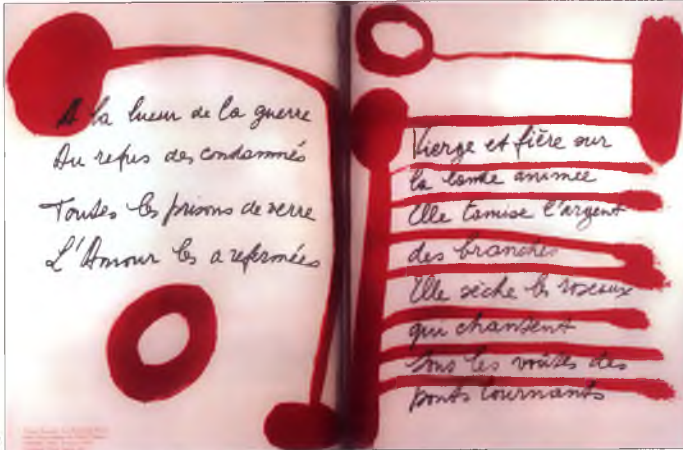 A la lueur de la guerre
Au refus des condamnés
Toutes les prisons de verre
L'Amour les a refermées
Vierge et fière sur
la tombe animée
Elle tamise l'argent
des branches
Elle sèche les roseaux
qui chantent
sous les voûtes des
ponts tournants